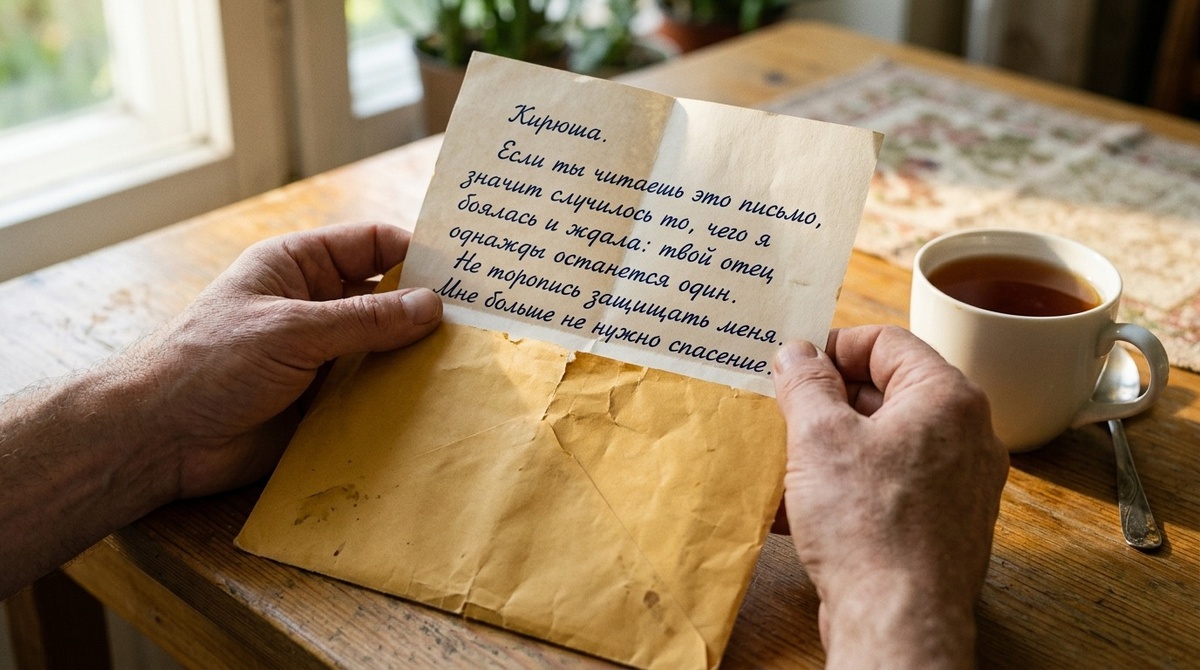 Кирюша.
Если ты читаешь это письмо,
значит случилось то, чего я
боялась и ждала: твой отец
однажды останется один.
Не торопись защищать меня.
Мне больше не нужно спасение.